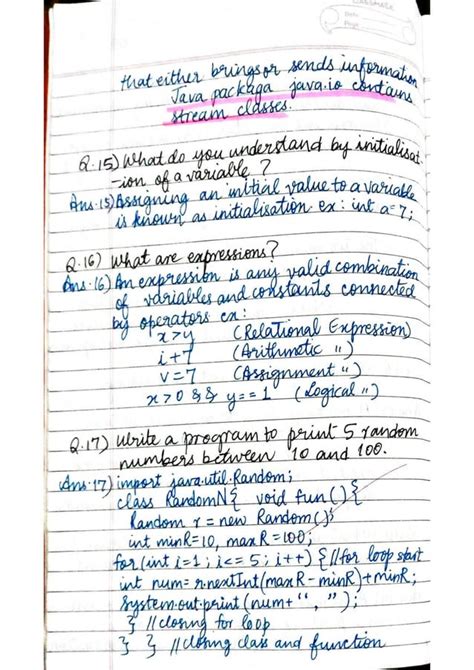 classmate
Date
Page
that either brings or sends information
Java packaga java.io contains
stream classes.
Q.15) What do you understand by initialisat
-ion of a variable ?
Ans.15) Assigning an initial value to a variable
is known as initialisation ex: int a=7;
Q.16) What are expressions?
Ans.16) An expression is any valid combination
of variables and constants connected
by operators ex:
x>y (Relational Expression)
i+7 (Arithmetic ")
v=7 (Assignment ")
x>0 && y==1 (Logical ")
Q.17) Write a program to print 5 random
numbers between 10 and 100.
Ans.17) import java.util.Random;
class RandomN{ void fun(){
Random r = new Random();
int minR=10, maxR=100;
for(int i=1; i<=5; i++) { //for loop start
int num=r.nextInt(maxR-minR)+minR;
System.out.print(num+" , ");
} //closing for loop
} } //closing class and function